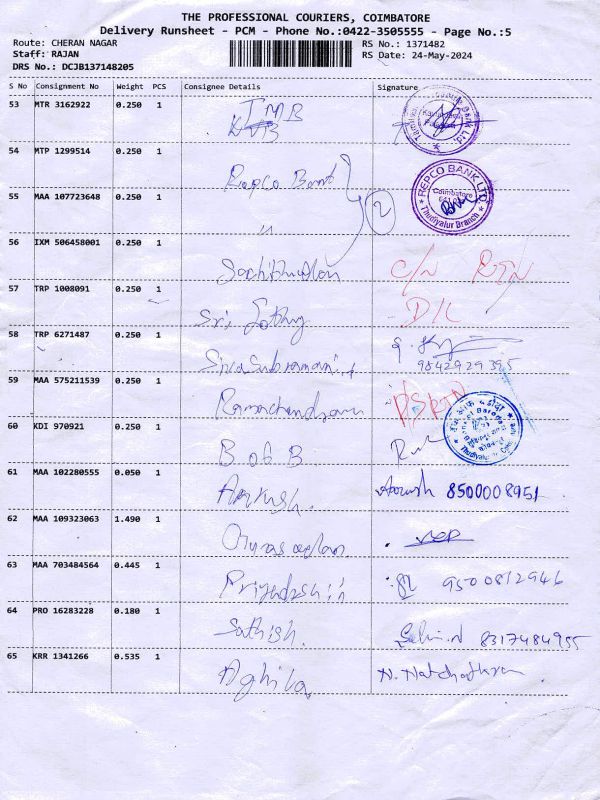 THE PROFESSIONAL COURIERS, COIMBATORE
Delivery Runsheet - PCM - Phone No.:0422-3505555 - Page No.:5
Route: CHERAN NAGAR
RS No.: 1371482
Staff: RAJAN
RS Date: 24-May-2024
DRS No.: DCJB137148205
S No Consignment No Weight PCS Consignee Details Signature
53 MTR 3162922 0.250 1 TMB
KVB
54 MTP 1299514 0.250 1 Repco Bank REPCO BANK LTD. Coimbatore Thudiyalur Branch
55 MAA 107723648 0.250 1 " 2
56 IXM 506458001 0.250 1 C/N RTN
57 TRP 1008091 0.250 1 Sri D/L
58 TRP 6271487 0.250 1 Siva Subramani
9842929395
59 MAA 575211539 0.250 1 Ramachandran RTN
60 KDI 970921 0.250 1 B of B
61 MAA 102280555 0.050 1 Ankush. 8500008951
62 MAA 109323063 1.490 1
63 MAA 703484564 0.445 1 Priyadarshini 9500812946
64 PRO 16283228 0.180 1 Sathish. 8317484955
65 KRR 1341266 0.535 1 Aghila N.